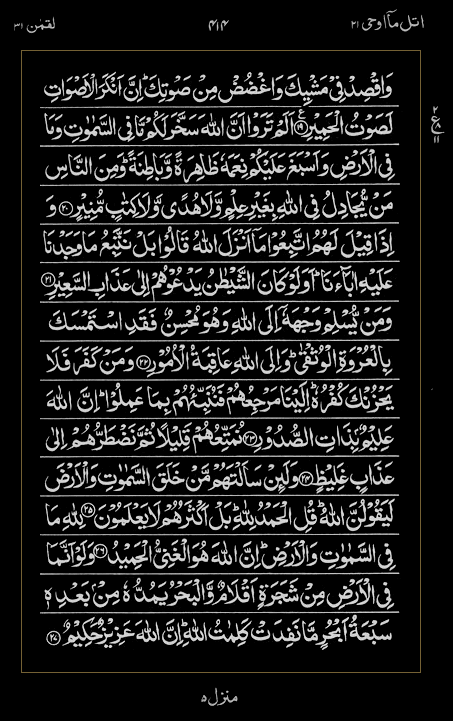 اتل مآ اوحی ۲۱
۴۱۴
لقمٰن ۳۱
وَاقْصِدْ فِیْ مَشْیِكَ وَاغْضُضْ مِنْ صَوْتِكَ ؕ اِنَّ اَنْكَرَ الْاَصْوَاتِ
لَصَوْتُ الْحَمِیْرِ ﴿۱۹﴾ اَلَمْ تَرَوْا اَنَّ اللّٰهَ سَخَّرَ لَكُمْ مَّا فِی السَّمٰوٰتِ وَمَا
فِی الْاَرْضِ وَاَسْبَغَ عَلَیْكُمْ نِعَمَهٗ ظَاهِرَةً وَّبَاطِنَةً ؕ وَمِنَ النَّاسِ
مَنْ یُّجَادِلُ فِی اللّٰهِ بِغَیْرِ عِلْمٍ وَّلَا هُدًی وَّلَا كِتٰبٍ مُّنِیْرٍ ﴿۲۰﴾ وَ
اِذَا قِیْلَ لَهُمُ اتَّبِعُوْا مَاۤ اَنْزَلَ اللّٰهُ قَالُوْا بَلْ نَتَّبِعُ مَا وَجَدْنَا
عَلَیْهِ اٰبَآءَنَا ؕ اَوَلَوْ كَانَ الشَّیْطٰنُ یَدْعُوْهُمْ اِلٰی عَذَابِ السَّعِیْرِ ﴿۲۱﴾
وَمَنْ یُّسْلِمْ وَجْهَهٗۤ اِلَی اللّٰهِ وَهُوَ مُحْسِنٌ فَقَدِ اسْتَمْسَكَ
بِالْعُرْوَةِ الْوُثْقٰی ؕ وَاِلَی اللّٰهِ عَاقِبَةُ الْاُمُوْرِ ﴿۲۲﴾ وَمَنْ كَفَرَ فَلَا
یَحْزُنْكَ كُفْرُهٗ ؕ اِلَیْنَا مَرْجِعُهُمْ فَنُنَبِّئُهُمْ بِمَا عَمِلُوْا ؕ اِنَّ اللّٰهَ
عَلِیْمٌۢ بِذَاتِ الصُّدُوْرِ ﴿۲۳﴾ نُمَتِّعُهُمْ قَلِیْلًا ثُمَّ نَضْطَرُّهُمْ اِلٰی
عَذَابٍ غَلِیْظٍ ﴿۲۴﴾ وَلَئِنْ سَاَلْتَهُمْ مَّنْ خَلَقَ السَّمٰوٰتِ وَالْاَرْضَ
لَیَقُوْلُنَّ اللّٰهُ ؕ قُلِ الْحَمْدُ لِلّٰهِ ؕ بَلْ اَكْثَرُهُمْ لَا یَعْلَمُوْنَ ﴿۲۵﴾ لِلّٰهِ مَا
فِی السَّمٰوٰتِ وَالْاَرْضِ ؕ اِنَّ اللّٰهَ هُوَ الْغَنِیُّ الْحَمِیْدُ ﴿۲۶﴾ وَلَوْ اَنَّمَا
فِی الْاَرْضِ مِنْ شَجَرَةٍ اَقْلَامٌ وَّالْبَحْرُ یَمُدُّهٗ مِنْۢ بَعْدِهٖ
سَبْعَةُ اَبْحُرٍ مَّا نَفِدَتْ كَلِمٰتُ اللّٰهِ ؕ اِنَّ اللّٰهَ عَزِیْزٌ حَكِیْمٌ ﴿۲۷﴾
۲
ع ۸
۱۱
منزل ۵